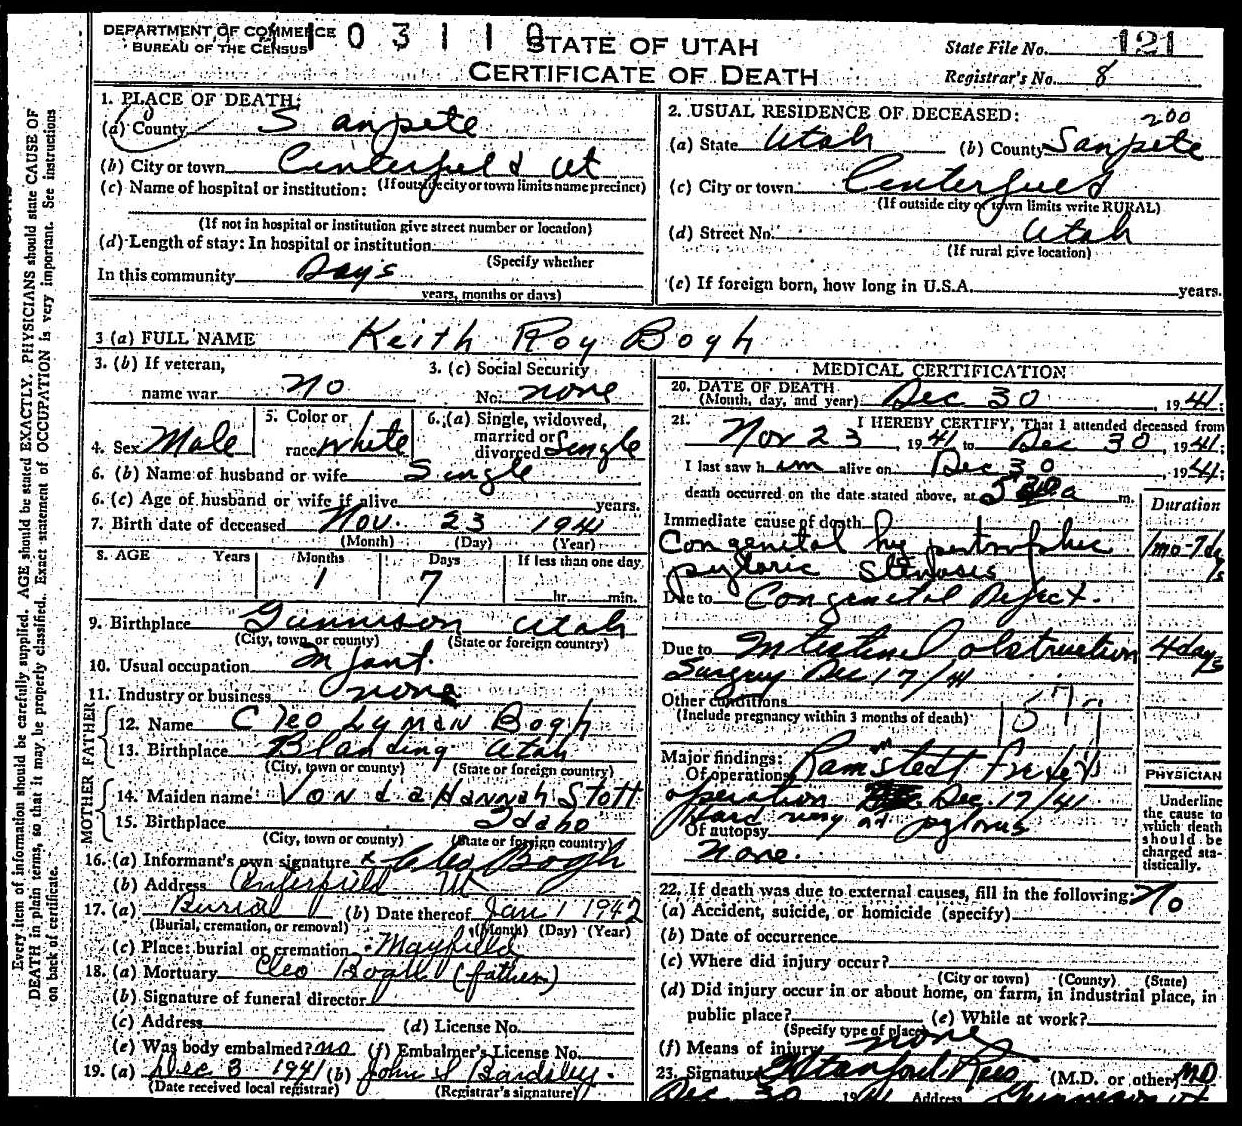 DEPARTMENT OF COMMERCE
BUREAU OF THE CENSUS
STATE OF UTAH
CERTIFICATE OF DEATH
State File No. 121
Registrar's No. 8
1. PLACE OF DEATH:
(a) County Sanpete
(b) City or town Centerfield Ut
(c) Name of hospital or institution: (If outside city or town limits name precinct)
(If not in hospital or institution give street number or location)
(d) Length of stay: In hospital or institution
(Specify whether
In this community Days
years, months or days)
2. USUAL RESIDENCE OF DECEASED:
200
(a) State Utah (b) County Sanpete
(c) City or town Centerfield
(If outside city or town limits write RURAL)
(d) Street No. Utah
(If rural give location)
(e) If foreign born, how long in U.S.A. years.
3 (a) FULL NAME Keith Roy Bogh
3. (b) If veteran, name war No
3. (c) Social Security No. none
4. Sex Male
5. Color or race White
6. (a) Single, widowed, married or divorced Single
6. (b) Name of husband or wife Single
6. (c) Age of husband or wife if alive years.
7. Birth date of deceased Nov. 23 1941
(Month) (Day) (Year)
8. AGE Years Months Days If less than one day
1 7 hr. min.
9. Birthplace Gunnison Utah
(City, town or county) (State or foreign country)
10. Usual occupation Infant.
11. Industry or business none
FATHER
12. Name Cleo Lyman Bogh
13. Birthplace Blanding Utah
(City, town or county) (State or foreign country)
MOTHER
14. Maiden name Vonda Hannah Stott
15. Birthplace Idaho
(City, town or county) (State or foreign country)
16. (a) Informant's own signature x Cleo Bogh
(b) Address Centerfield Ut
17. (a) Burial (b) Date thereof Jan 1 1942
(Burial, cremation, or removal) (Month) (Day) (Year)
(c) Place: burial or cremation Mayfield
18. (a) Mortuary Cleo Bogh (father)
(b) Signature of funeral director
(c) Address (d) License No.
(e) Was body embalmed? no (f) Embalmer's License No.
19. (a) Dec 3 1941 (b) John S Bardsley.
(Date received local registrar) (Registrar's signature)
MEDICAL CERTIFICATION
20. DATE OF DEATH
(Month, day, and year) Dec 30, 1941;
21. I HEREBY CERTIFY, That I attended deceased from
Nov 23, 1941 to Dec 30, 1941;
I last saw him alive on Dec 30, 1941;
death occurred on the date stated above, at a m.
Duration
Immediate cause of death
Congenital hypertrophic 1 mo-7 dys
pyloric Stenosis
Due to Congenital Defect.
Due to Intestinal obstruction 4 days
Surgery Dec 17/41
Other conditions
(Include pregnancy within 3 months of death)
157
Major findings:
Of operations Ramstedt
operation Dec. 17/41
Hard pylorus
Of autopsy
None.
PHYSICIAN
Underline the cause to which death should be charged statistically.
22. If death was due to external causes, fill in the following: No
(a) Accident, suicide, or homicide (specify)
(b) Date of occurrence
(c) Where did injury occur?
(City or town) (County) (State)
(d) Did injury occur in or about home, on farm, in industrial place, in
public place? (e) While at work?
(Specify type of place)
(f) Means of injury none
23. Signature Stanford Rees (M.D. or other) MD
Dec 30 1941 Address Gunnison Ut
Every item of information should be carefully supplied. AGE should be stated EXACTLY. PHYSICIANS should state CAUSE OF
DEATH in plain terms, so that it may be properly classified. Exact statement of OCCUPATION is very important. See instructions
on back of certificate.